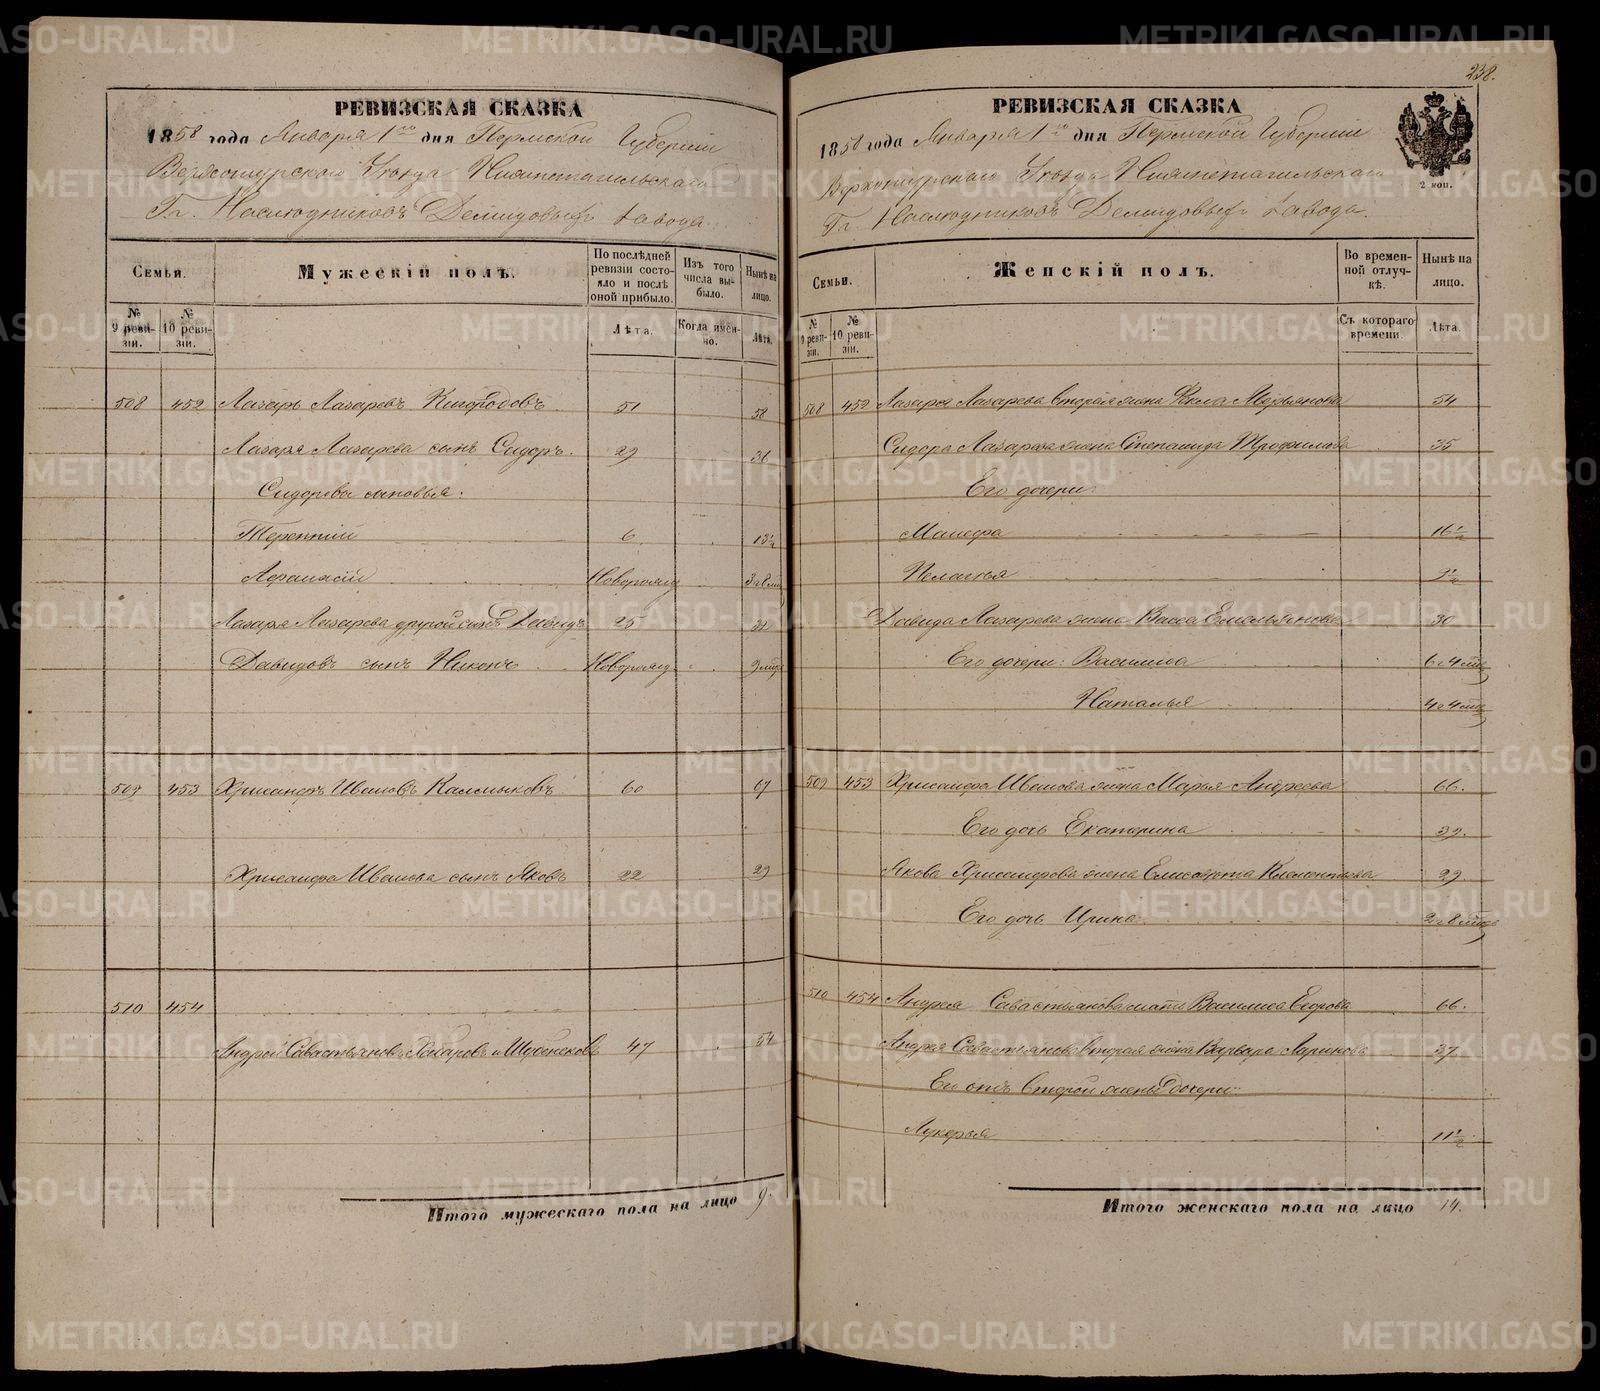 РЕВИЗСКАЯ СКАЗКА
1858 года Января 1го дня Пермской Губернiи
Верхотурского Уѣзда Нижнетагильскаго
Гг. Наслѣдниковъ Демидовыхъ завода.
Семьи.
Мужескiй полъ.
По послѣдней ревизiи состояло и послѣ оной прибыло.
Изъ того числа выбыло.
Нынѣ на лицо.
№ 9 ревизiи.
№ 10 ревизiи.
Лѣта.
Когда именно.
Лѣта.
508 452 Лазарь Лазаревъ 51 58
Лазаря Лазарева сынъ Сидоръ. 29 36
Сидорова сыновья:
Терентiй 6 13½
Афанасiй Новорожд
Лазаря Лазарева другой сынъ Давидъ 25 32
Давидовъ сынъ Никонъ Новорожд. 9 мцъ
509 453 Хрисанфъ Ивановъ Калмыковъ 60 67
Хрисанфа Иванова сынъ Яковъ 22 29
510 454
Андрей Савастьяновъ Захаровъ и 47 54
Итого мужескаго пола на лицо 9.
238.
РЕВИЗСКАЯ СКАЗКА
1858 года Января 1го дня Пермской Губернiи
Верхотурскаго Уѣзда Нижнетагильскаго
Гг. Наслѣдниковъ Демидовыхъ завода.
2 коп.
Семьи.
Женскiй полъ.
Во временной отлучкѣ.
Нынѣ на лицо.
№ 9 ревизiи.
№ 10 ревизiи.
Съ котораго времени.
Лѣта.
508 452 Лазаря Лазарева вторая жена Фекла 54
Сидора Лазарева жена Степанида Трофимова 35
Его дочери:
Манефа 16½
Пелагья 9½
Давида Лазарева жена Васса Емельянова 30
Его дочери: Василиса 6 г 4 мца
Наталья 4 г 4 мца
509 453 Хрисанфа Иванова жена Марья Андреева 66.
Его дочь Екатерина 32.
Якова Хрисанфова жена Елисавета Климентьева 29.
Его дочь Ирина 2 г 8 мцов
510 454 Андрея Савастьянова мать Василиса Егорова 66.
Андрея Савастьянова вторая жена Варвара Ларионова 37.
Его отъ второй жены дочери:
Лукерья 11½
Итого женскаго пола на лицо 14.
METRIKI.GASO-URAL.RU